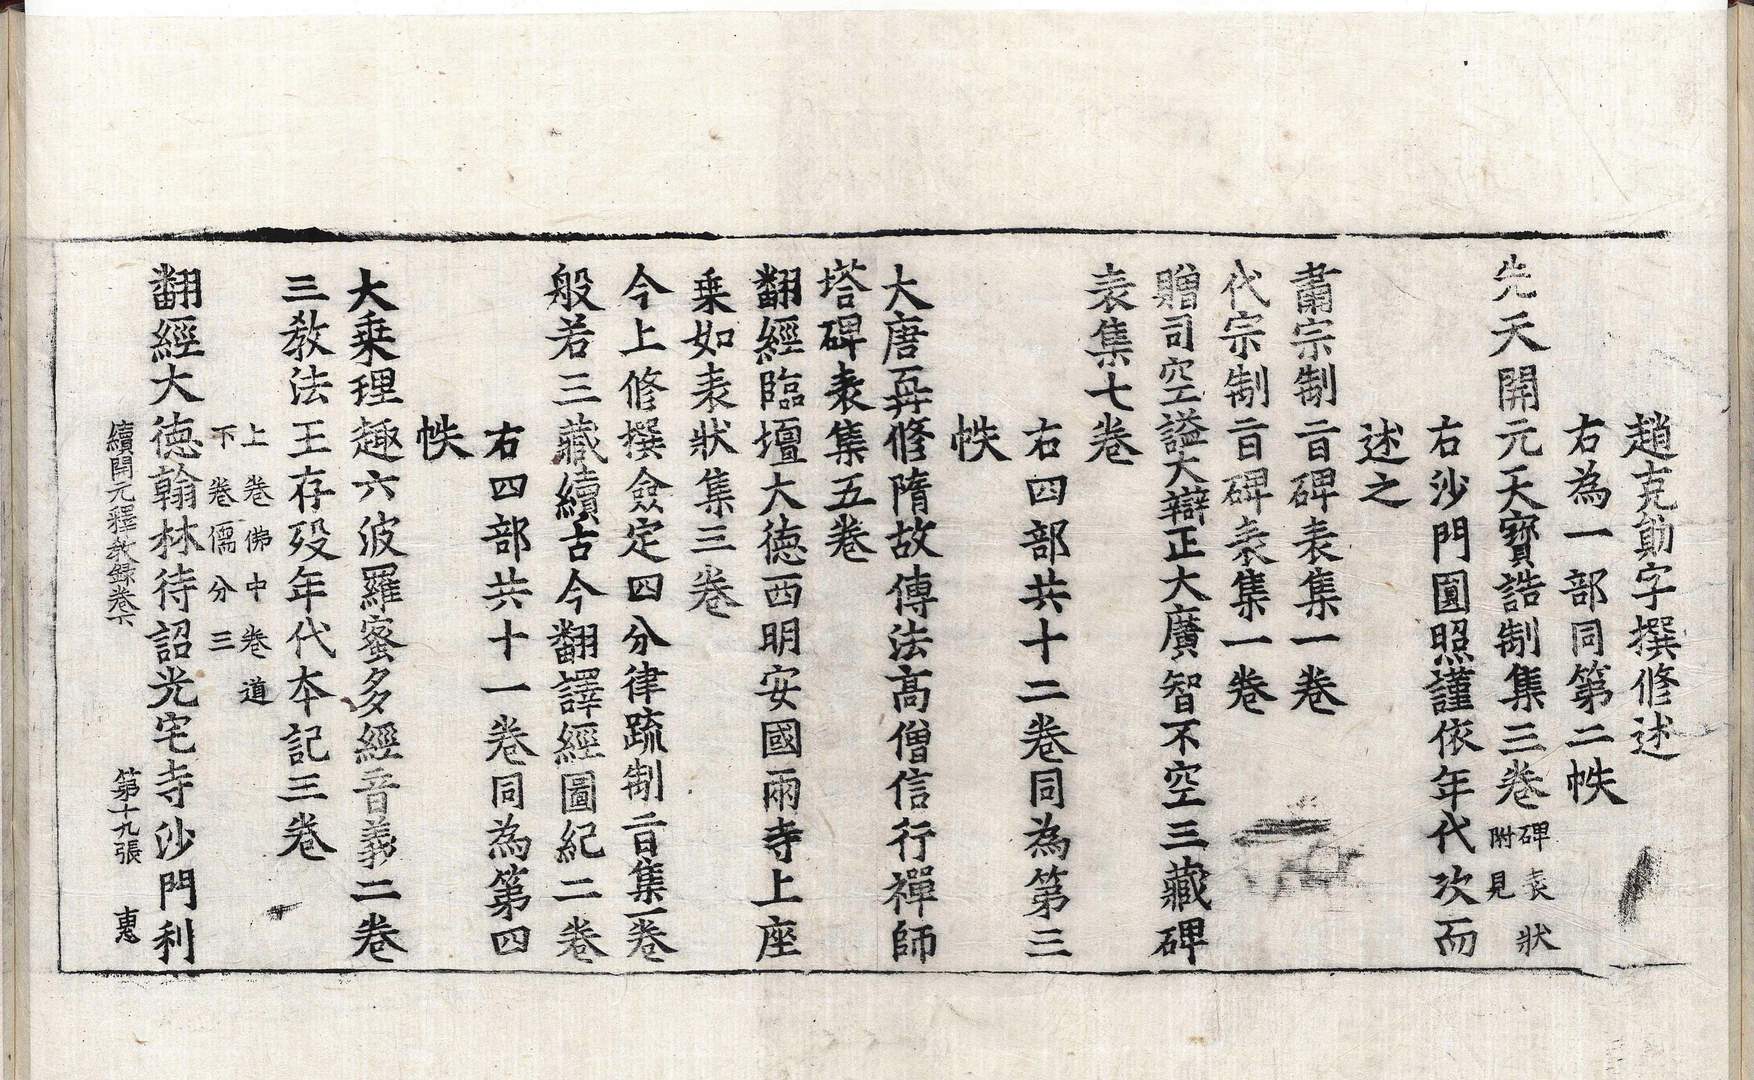 趙克勛字撰修述
右為一部同第二帙
先天開元天寶誥制集三卷碑表狀附見
右沙門圓照謹依年代次而
述之
肅宗制旨碑表集一卷
代宗制旨碑表集一卷
贈司空謚大辯正大廣智不空三藏碑
表集七卷
右四部共十二卷同為第三
帙
大唐再修隋故傳法高僧信行禪師
塔碑表集五卷
翻經臨壇大德西明安國兩寺上座
乗如表狀集三卷
今上修撰僉定四分律疏制旨集一卷
般若三藏續古今翻譯經圖紀二卷
右四部共十一卷同為第四
帙
大乗理趣六波羅蜜多經音義二卷
三教法王存殁年代本記三卷
上卷佛中卷道
下卷儒分三
翻經大德翰林待詔光宅寺沙門利
續開元釋教錄卷下 第十九張 惠